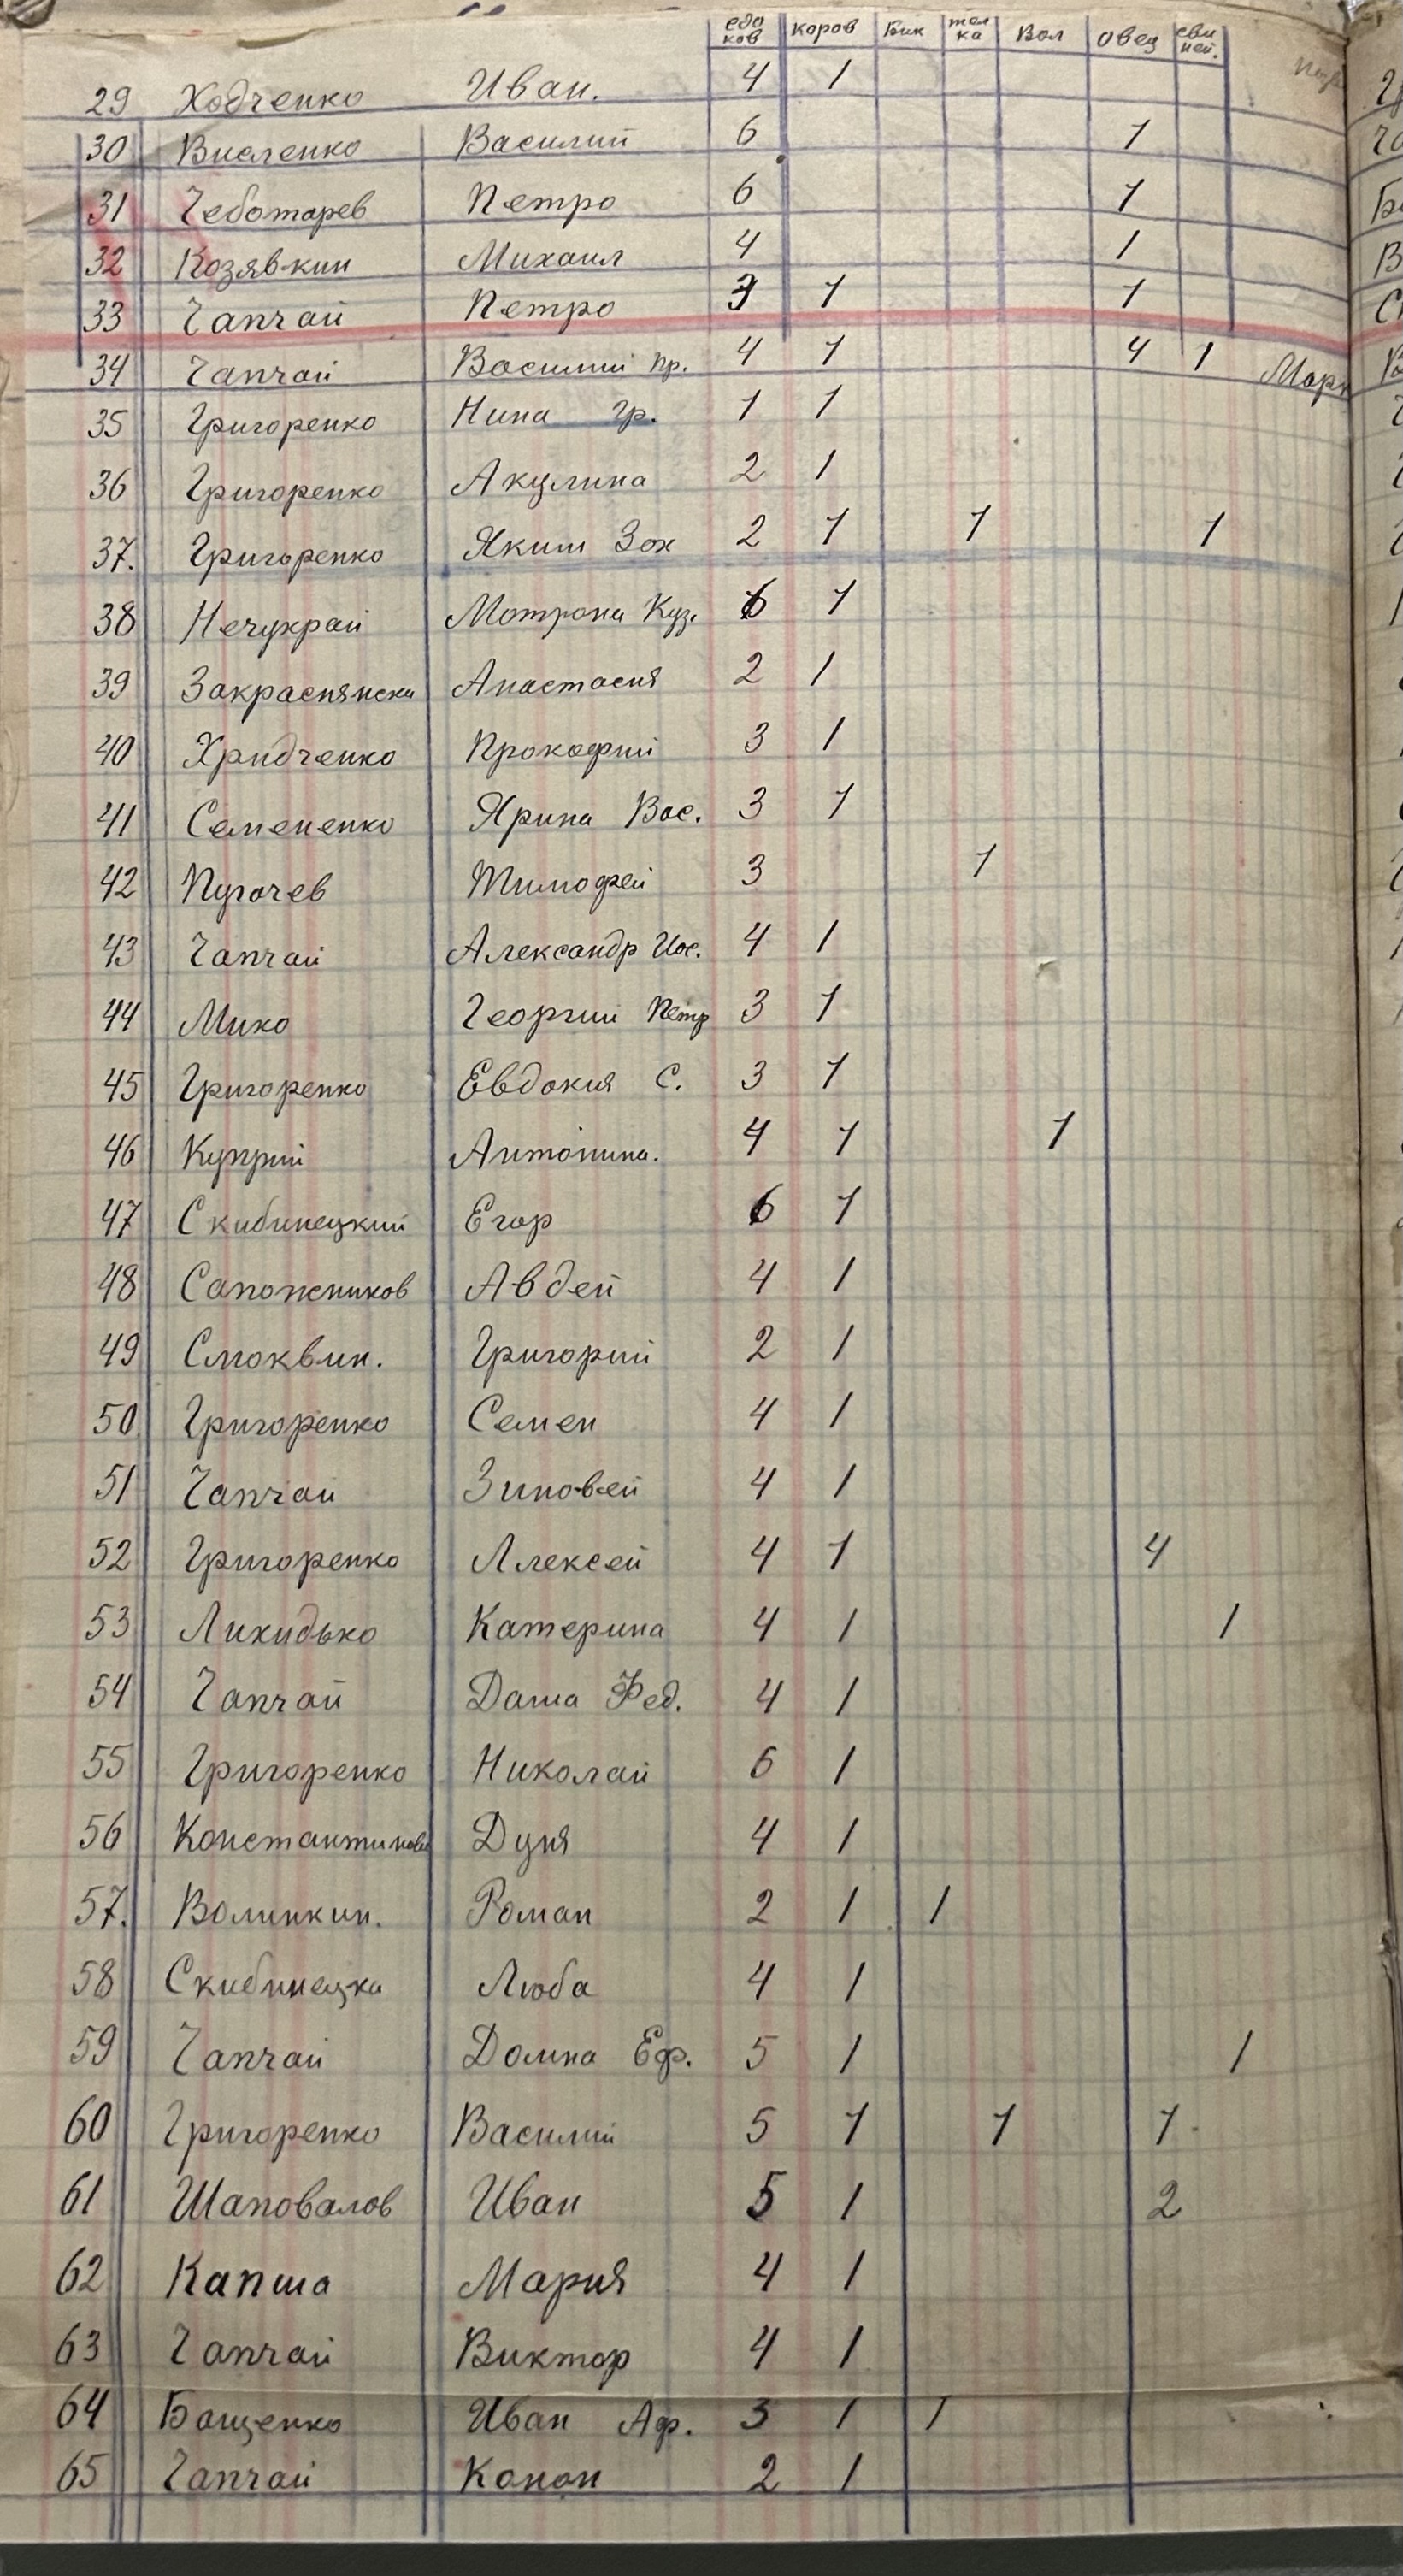 едоков коров Бик телка Вол овец свиней.
29 Ходченко Иван. 4 1
30 Висленко Василий 6 1
31 Чеботарев Петро 6 1
32 Козявкин Михаил 4 1
33 Чапчай Петро 3 1 1
34 Чапчай Василий пр. 4 1 4 1 Мари
35 Григоренко Нина Гр. 1 1
36 Григоренко Акулина 2 1
37. Григоренко Яким Зах 2 1 1 1
38 Нечукрай Мотрона Куз. 6 1
39 Закраснянска Анастасия 2 1
40 Хридченко Прокофий 3 1
41 Семененко Ярина Вас. 3 1
42 Пугачев Тимофей 3 1
43 Чапчай Александр Иос. 4 1
44 Мико Георгий Петр 3 1
45 Григоренко Евдокия С. 3 1
46 Куприй Антонина. 4 1 1
47 Скибинецкий Егор 6 1
48 Сапожников Авдей 4 1
49 Смоквин. Григорий 2 1
50 Григоренко Семен 4 1
51 Чапчай Зиновей 4 1
52 Григоренко Алексей 4 1 4
53 Лихидько Катерина 4 1 1
54 Чапчай Даша Фед. 4 1
55 Григоренко Николай 6 1
56 Константинова Дуня 4 1
57. Волинкин. Роман 2 1 1
58 Скибинецка Люба 4 1
59 Чапчай Домна Еф. 5 1 1
60 Григоренко Василий 5 1 1 1
61 Шаповалов Иван 5 1 2
62 Капша Мария 4 1
63 Чапчай Виктор 4 1
64 Бащенко Иван Аф. 3 1 1
65 Чапчай Конон 2 1